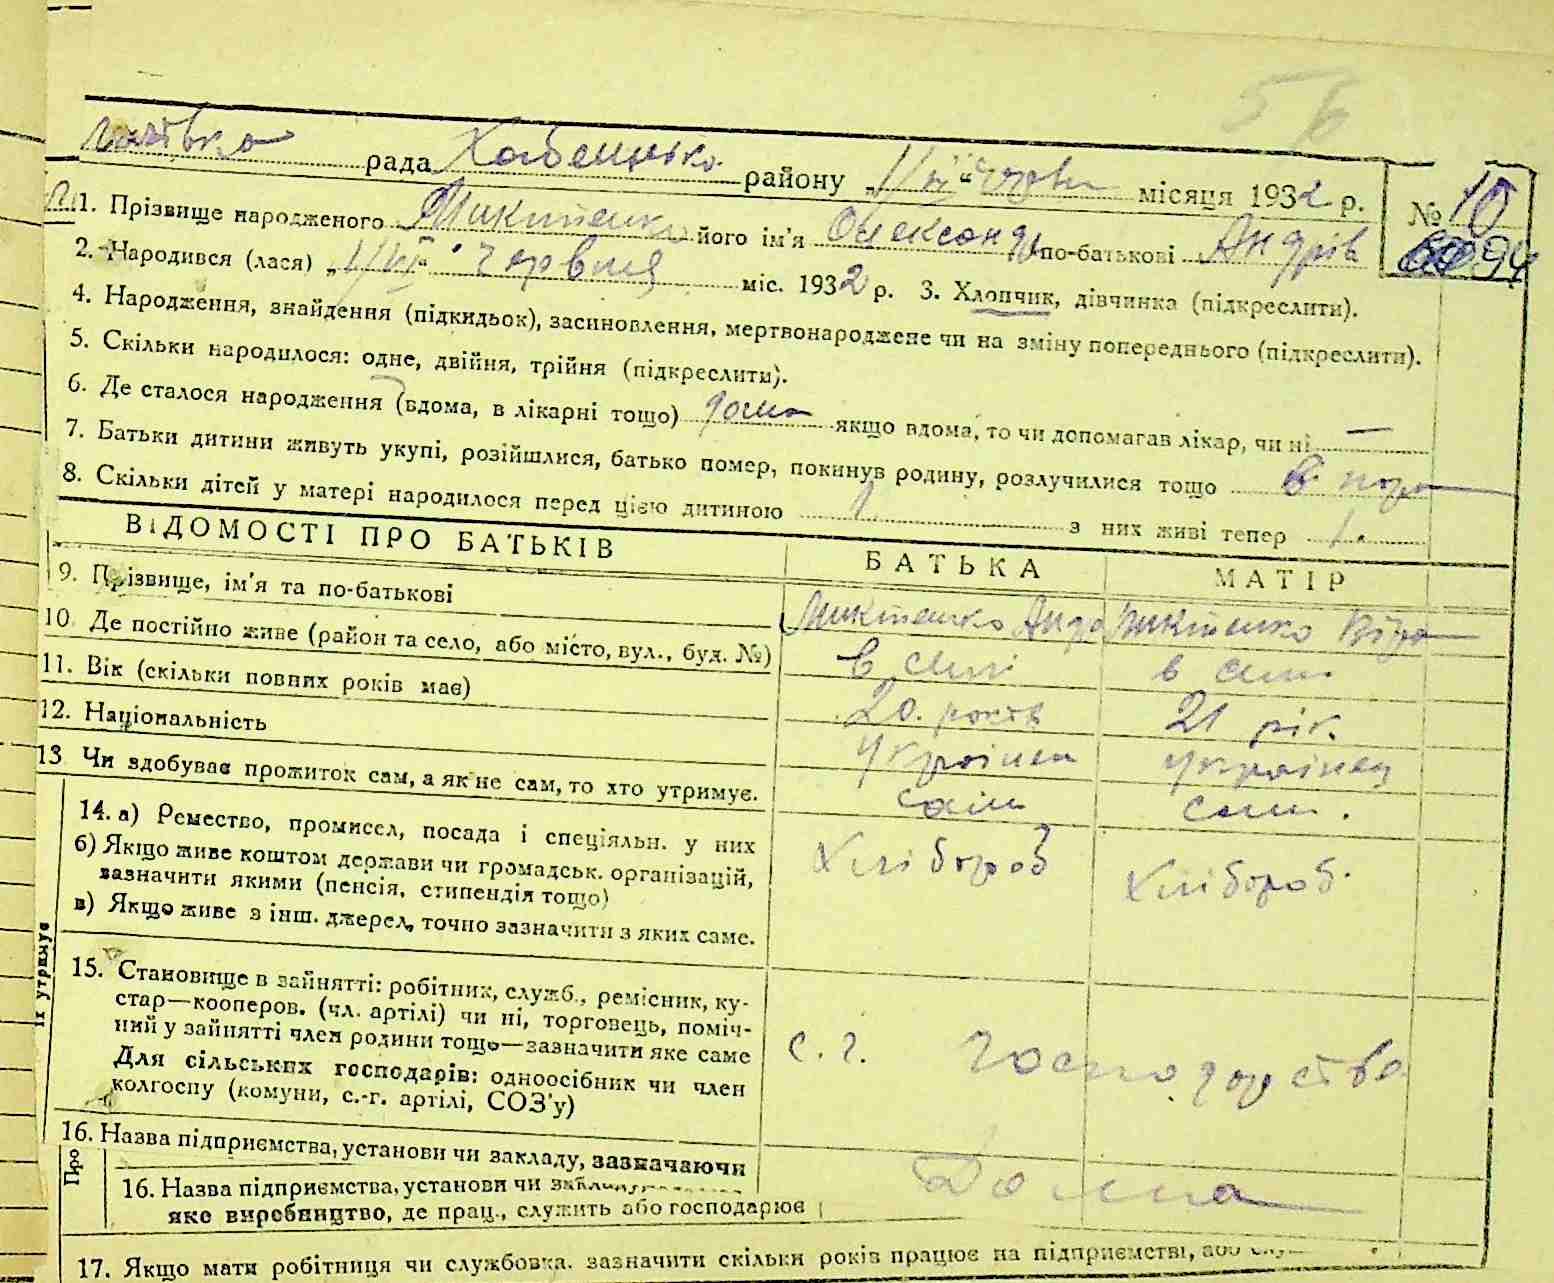 рада Хабенсько району місяця 1932 р.
№ 10
94
1. Прізвище народженого Микитенко його ім'я Олександр по-батькові Андрів
2. Народився (лася) „ Червня міс. 1932 р. 3. Хлопчик, дівчинка (підкреслити).
4. Народження, знайдення (підкидьок), засиновлення, мертвонароджене чи на зміну попереднього (підкреслити).
5. Скільки народилося: одне, двійня, трійня (підкреслити).
6. Де сталося народження (вдома, в лікарні тощо) дома якщо вдома, то чи допомагав лікар, чи ні —
7. Батьки дитини живуть укупі, розійшлися, батько помер, покинув родину, розлучилися тощо
8. Скільки дітей у матері народилося перед цією дитиною 1 з них живі тепер 1.
ВІДОМОСТІ ПРО БАТЬКІВ БАТЬКА МАТІР
9. Прізвище, ім'я та по-батькові Микитенко Андр Микитенко Віра
10. Де постійно живе (район та село, або місто, вул., буд. №) в селі в селі
11. Вік (скільки повних років має) 20. років 21 рік.
12. Національність Українец Українец
13 Чи здобуває прожиток сам, а як не сам, то хто утримує. сам сам.
14. а) Ремество, промисел, посада і спеціяльн. у них Хлібороб Хлібороб.
б) Якщо живе коштом держави чи громадськ. організацій,
зазначити якими (пенсія, стипендія тощо)
в) Якщо живе з інш. джерел, точно зазначити з яких саме.
їх утримує
15. Становище в зайнятті: робітник, служб., ремісник, ку-
стар—кооперов. (чл. артілі) чи ні, торговець, поміч-
ний у зайнятті член родини тощо—зазначити яке саме
с. г. господарство
Для сільських господарів: одноосібник чи член
колгоспу (комуни, с.-г. артілі, СОЗ'у)
16. Назва підприємства, установи чи закладу, зазначаючи
Про
16. Назва підприємства, установи чи
яке виробництво, де прац., служить або господарює Дома
17. Якщо мати робітниця чи службовка. зазначити скільки років працює на підприємстві, або